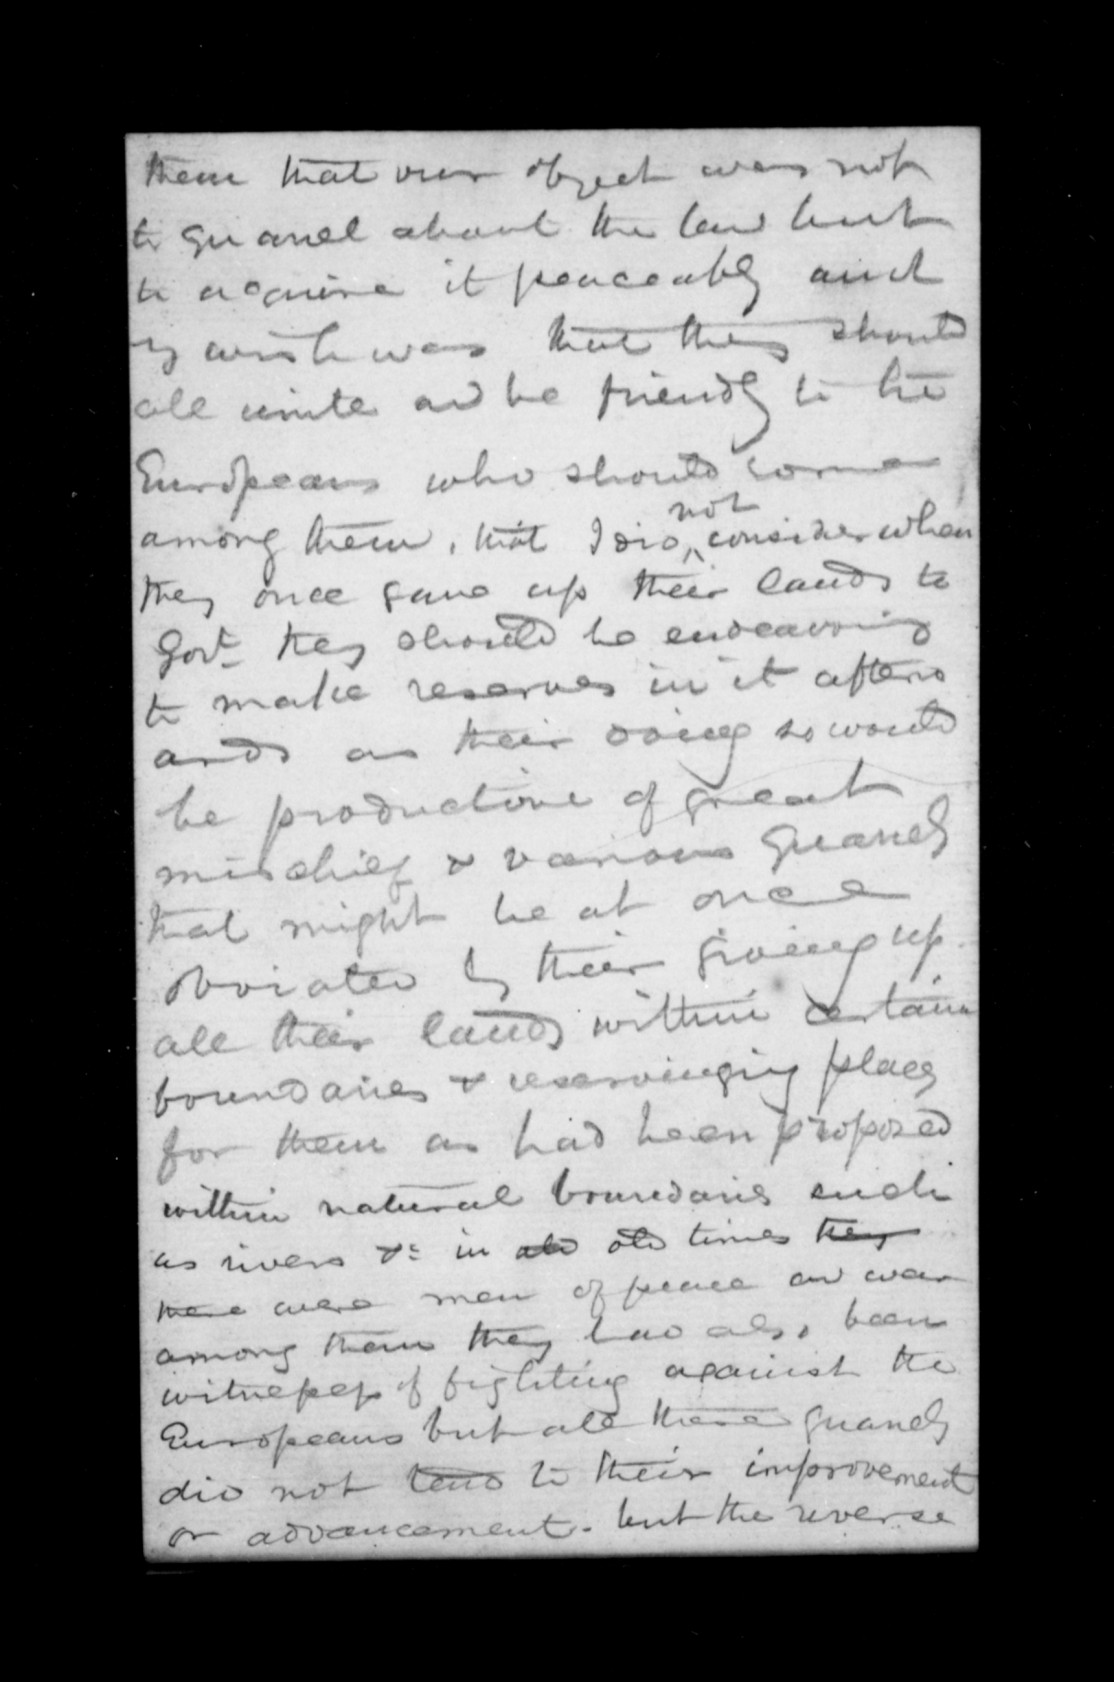 them that our object was not
to quarrel about the land but
to acquire it peaceably and
my wish was that they should
all unite and be friendly to the
Europeans who should come
among them, that I did not consider when
they once gave up their lands to
Govt they should be endeavoring
to make reserves in it afterw
ards as their doing so would
be productive of great
mischief & various quarrels
that might be at once
obviated by their giving up
all their lands within certain
boundaries & reserving places
for them as had been proposed
within natural boundaries such
as rivers &c in old old times they
there were men of peace and war
among them they had also been
witnesses of fighting against the
Europeans but all these quarrels
did not tend to their improvement
or advancement - but the reverse